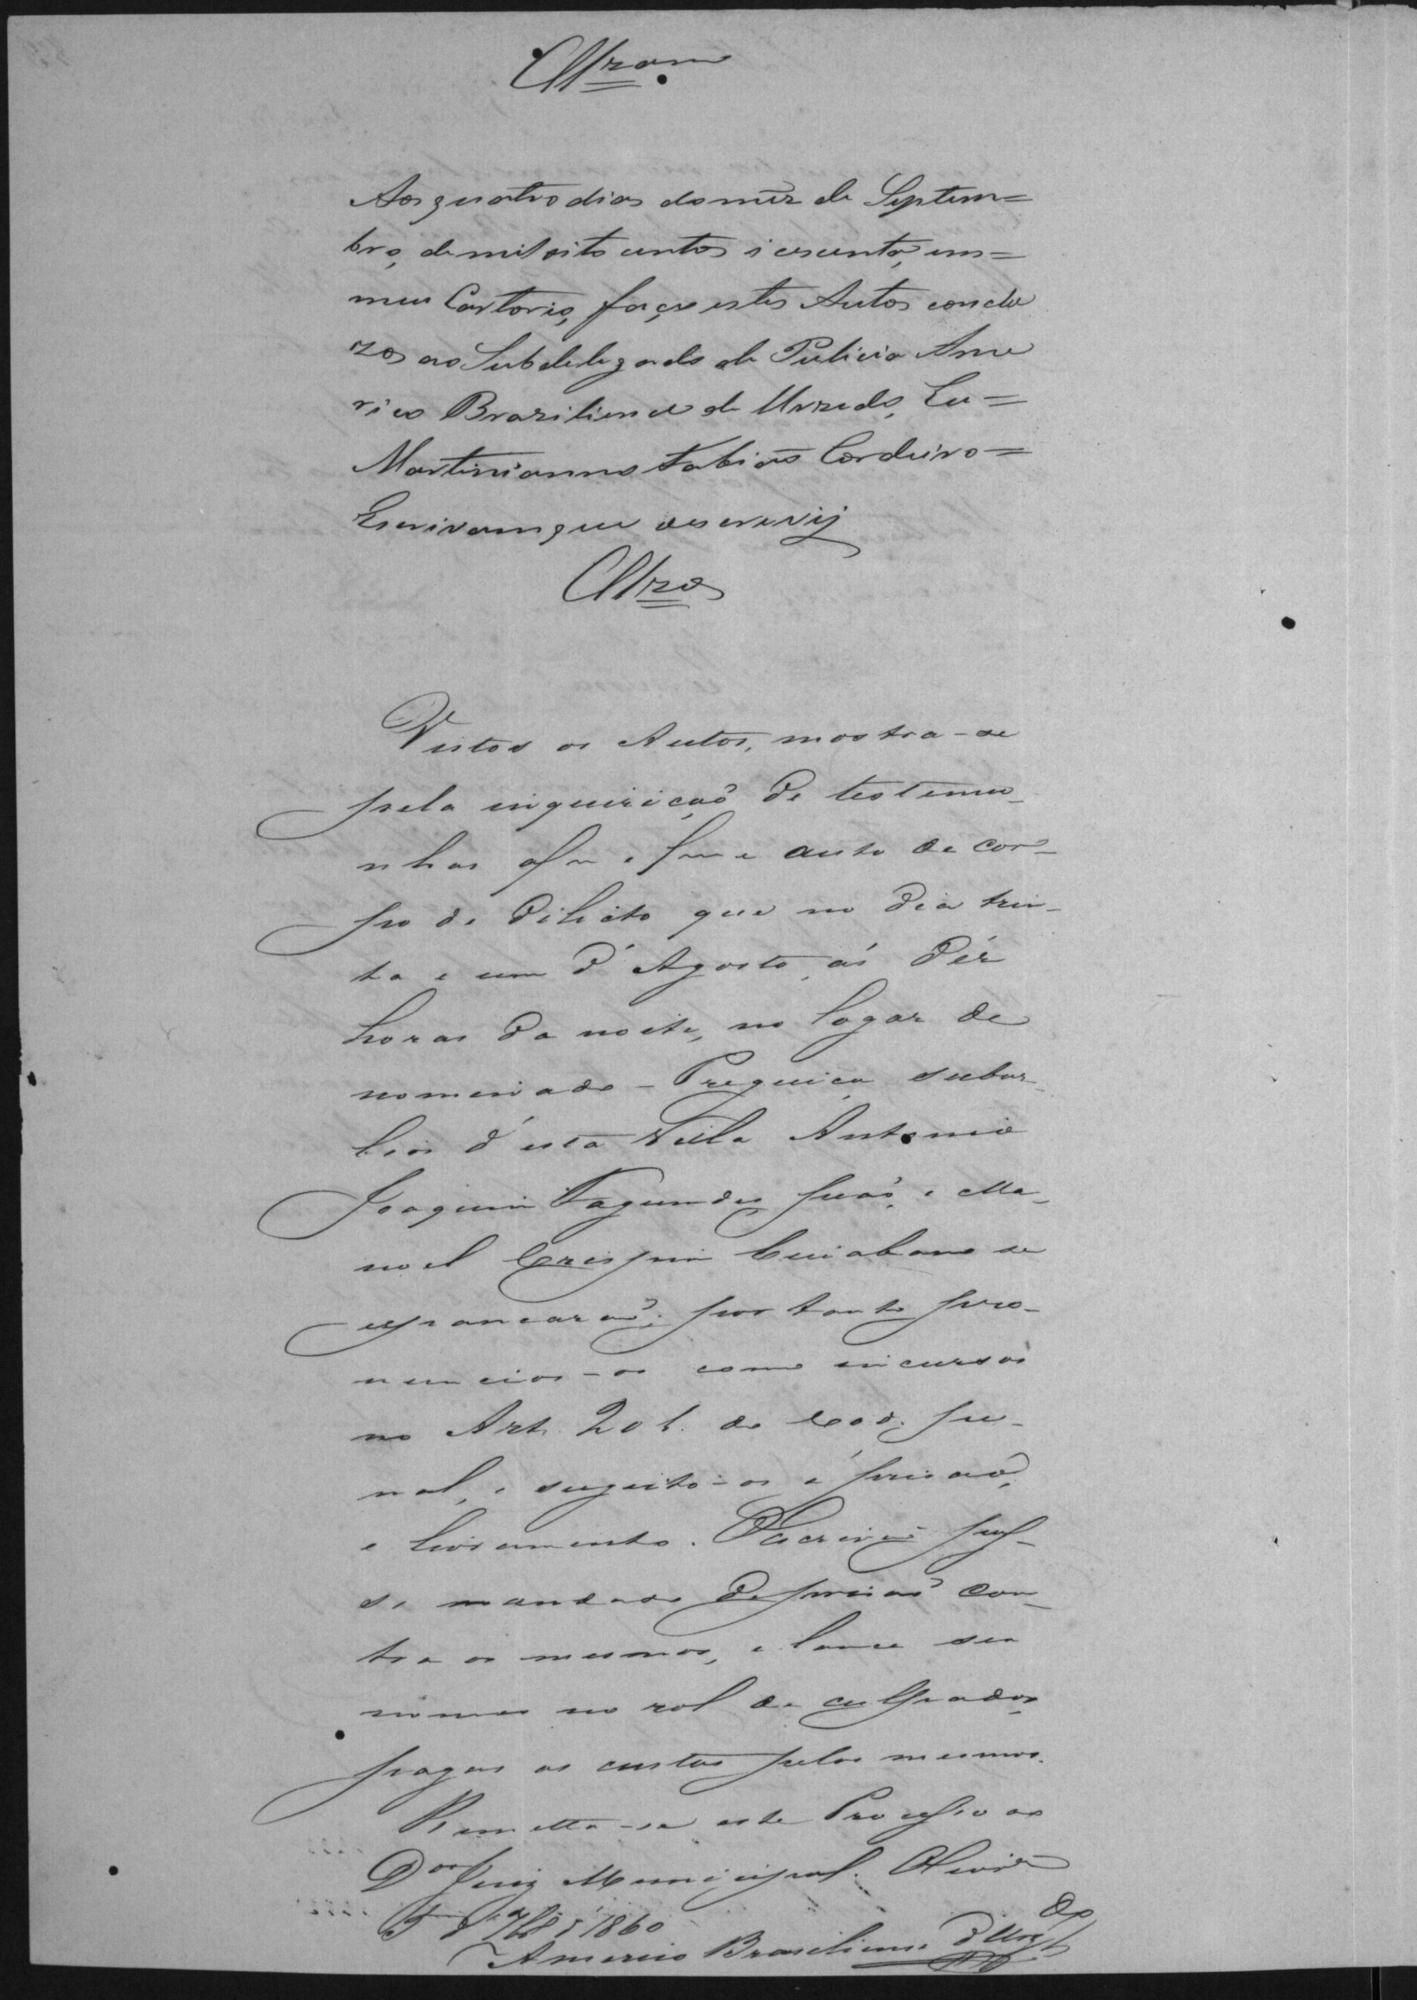 Aos quatro dias do mêz de Septem=
bro, de mil oito centos i cesenta, em=
meu Cartorio, faço estes Autos conclu
zos ao Subdelegado de Pulicia Ame
rico Brazilience de
Eu=
Martinianno Fabião Cordeiro=
Escrivam que os escrevij
Clzos
Vistos os Autos, mostra-se
pela inquirição de testemu-
nhas af e f e auto de cor-
po de dilicto que no dia trin-
ta e um d'Agosto, ás déz
horas da noite, no logar de
nominado - Preguiça, subur-
bios d'esta Villa Antonio
Joaquim Fagundes e Ma-
noel Crispim Cuiabano se
espancarão; por tanto pro-
nuncio-os como incursos
no Art. 201. do Cod. pe-
nal, e sugeito-os á prisão,
e livramento. O Escrivão pas-
se mandado de prisão con-
tra os mesmos, e lance seus
nomes no rol de culpados,
pagas as custas pelos mesmos.
Remetta-se este Processo ao
Dor Juiz Municipal.
5 d 7bro d 1860
Americo Brasiliense